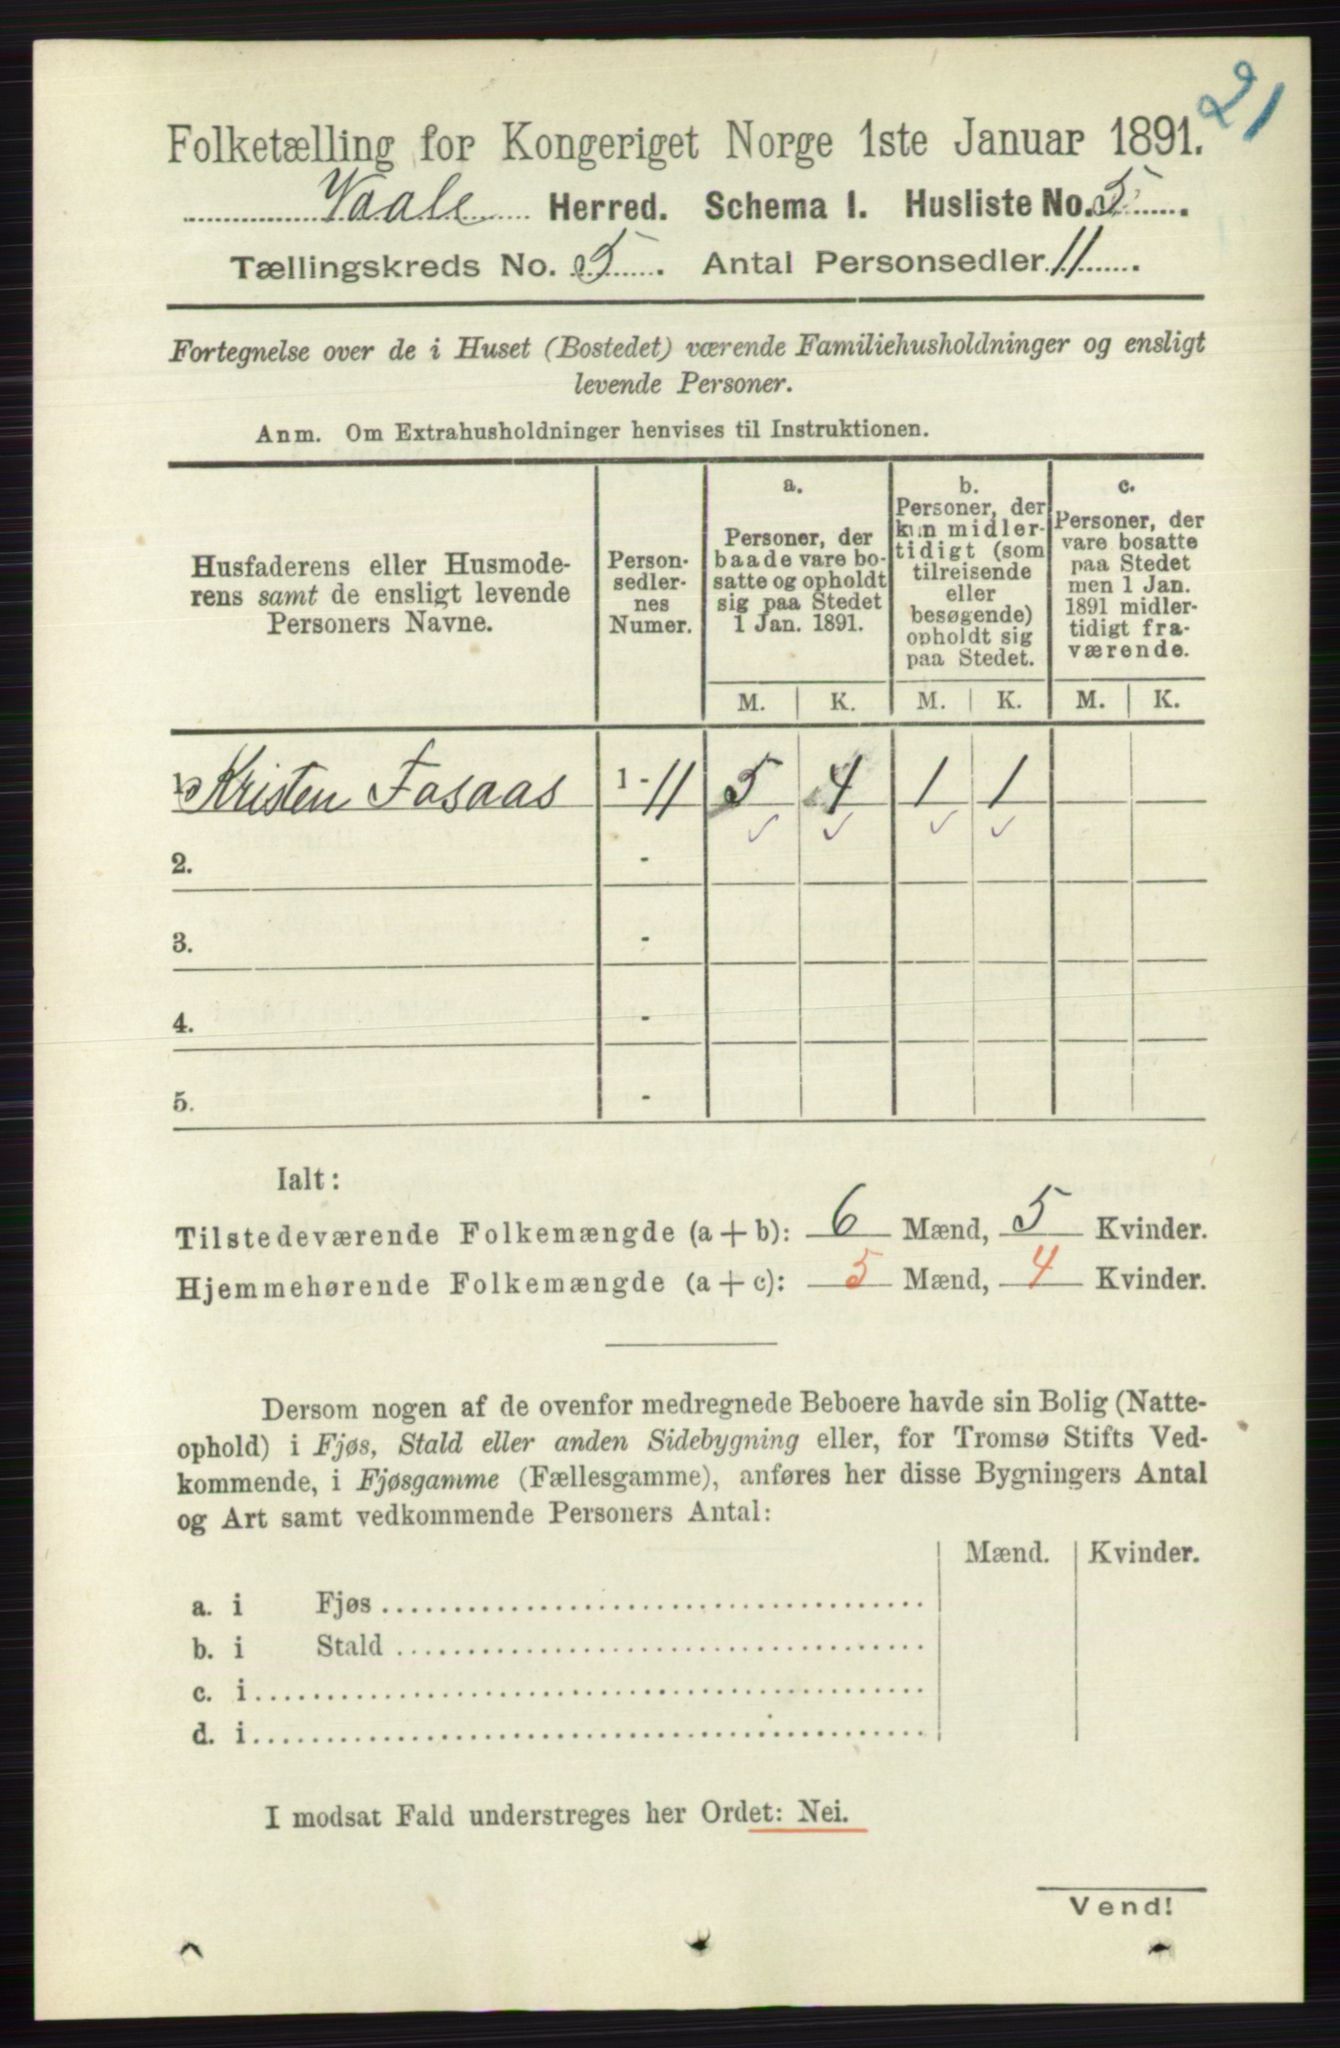 21
Folketælling for Kongeriget Norge 1ste Januar 1891.
Vaale Herred. Schema 1. Husliste No. 5.
Tællingskreds No. 5. Antal Personsedler 11.
Fortegnelse over de i Huset (Bostedet) værende Familiehusholdninger og ensligt
levende Personer.
Anm. Om Extrahusholdninger henvises til Instruktionen.
Husfaderens eller Husmode-
rens samt de ensligt levende
Personers Navne.
Person-
sedler-
nes
Numer.
a.
Personer, der
baade vare bo-
satte og opholdt
sig paa Stedet
1 Jan. 1891.
b.
Personer, der
kun midler-
tidigt (som
tilreisende
eller
besøgende)
opholdt sig
paa Stedet.
c.
Personer, der
vare bosatte
paa Stedet
men 1 Jan.
1891 midler-
tidigt fra-
værende.
M. K. M. K. M. K.
1. Kristen Fosaas 1 - 11 5 4 1 1
✓ ✓ ✓ ✓
2. -
3. -
4. -
5. -
Ialt:
Tilstedeværende Folkemængde (a + b): 6 Mænd, 5 Kvinder.
Hjemmehørende Folkemængde (a + c): 5 Mænd, 4 Kvinder.
Dersom nogen af de ovenfor medregnede Beboere havde sin Bolig (Natte-
ophold) i Fjøs, Stald eller anden Sidebygning eller, for Tromsø Stifts Ved-
kommende, i Fjøsgamme (Fællesgamme), anføres her disse Bygningers Antal
og Art samt vedkommende Personers Antal:
Mænd. Kvinder.
a. i Fjøs
b. i Stald
c. i
d. i
I modsat Fald understreges her Ordet: Nei.
Vend!